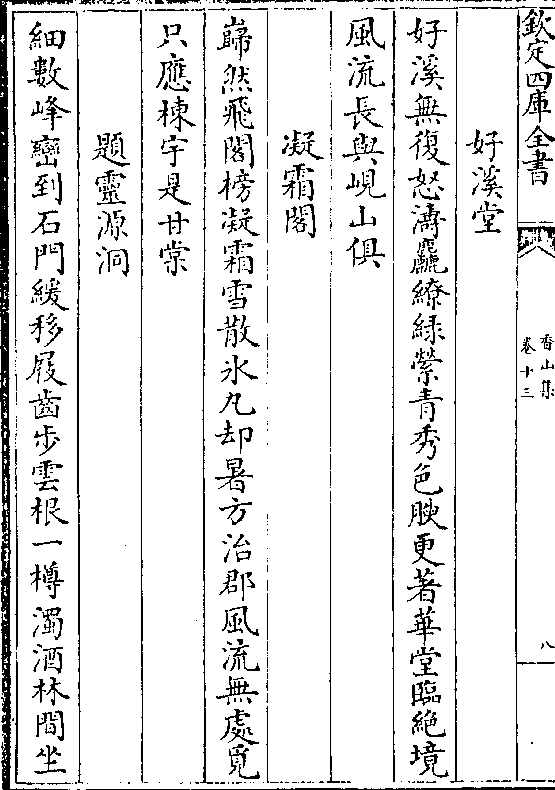 欽定四庫全書
香山集
卷十三
八
好溪堂
好溪無復怒濤麤繚緑縈青秀色腴更著華堂臨絶境
風流長與峴山俱
凝霜閣
巋然飛閣榜凝霜雪散氷丸却暑方治郡風流無處覓
只應棟宇是甘棠
題靈源洞
細數峰巒到石門緩移屐齒步雲根一樽濁酒林間坐